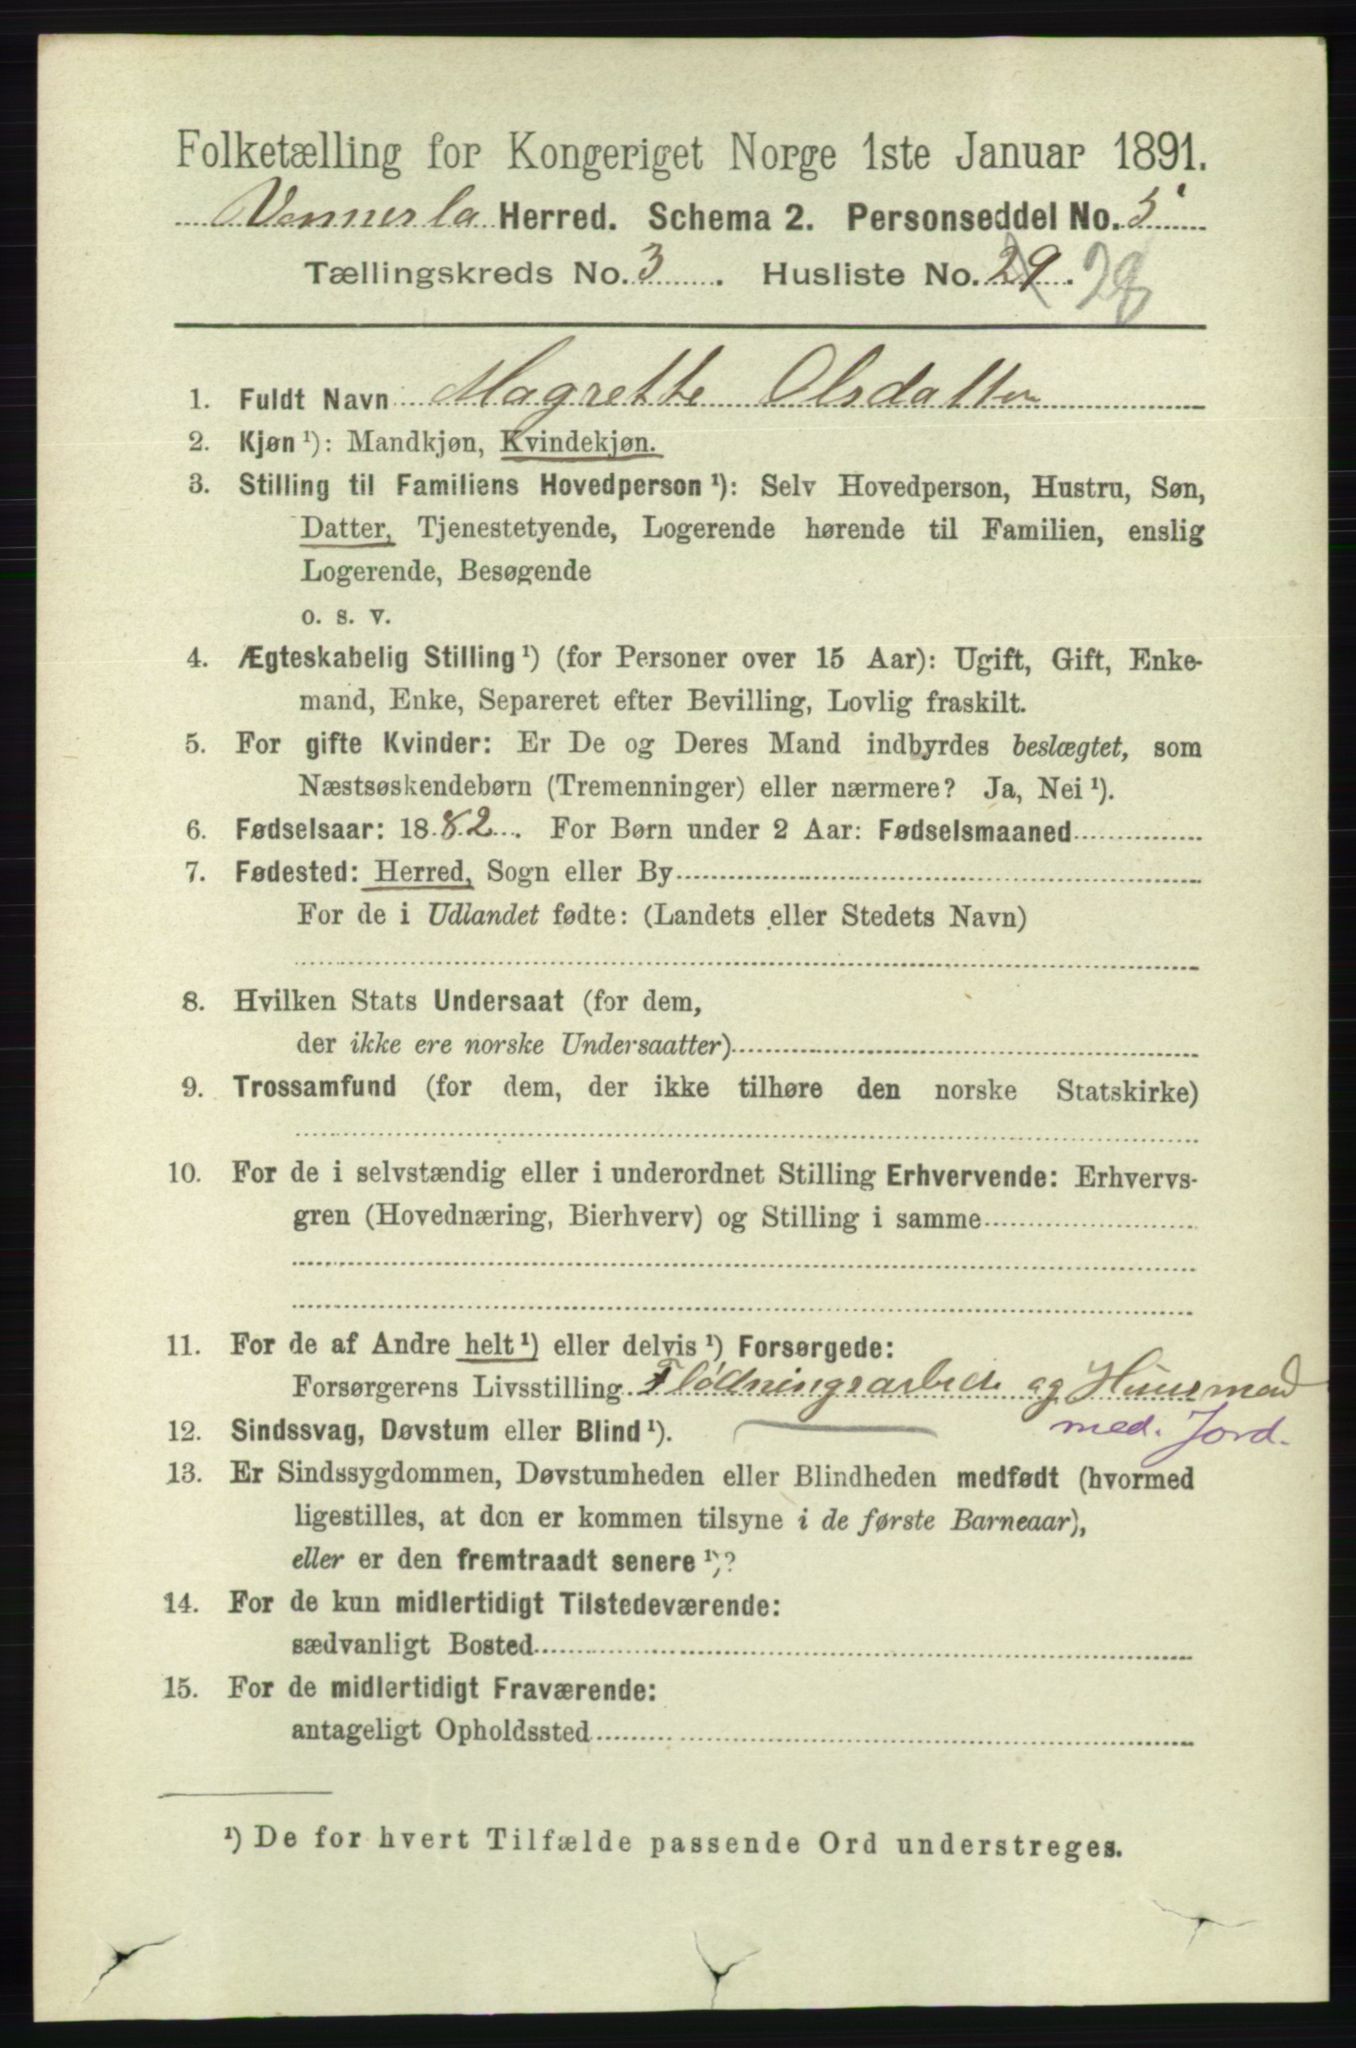 Folketælling for Kongeriget Norge 1ste Januar 1891.
Vennerla Herred. Schema 2. Personseddel No. 5
Tællingskreds No. 3. Husliste No. 29. 28
1. Fuldt Navn Magrette Olsdatter
2. Kjøn ¹): Mandkjøn, Kvindekjøn.
3. Stilling til Familiens Hovedperson ¹): Selv Hovedperson, Hustru, Søn,
Datter, Tjenestetyende, Logerende hørende til Familien, enslig
Logerende, Besøgende
o. s. v.
4. Ægteskabelig Stilling ¹) (for Personer over 15 Aar): Ugift, Gift, Enke-
mand, Enke, Separeret efter Bevilling, Lovlig fraskilt.
5. For gifte Kvinder: Er De og Deres Mand indbyrdes beslægtet, som
Næstsøskendebørn (Tremenninger) eller nærmere? Ja, Nei ¹).
6. Fødselsaar: 1882. For Børn under 2 Aar: Fødselsmaaned
7. Fødested: Herred, Sogn eller By
For de i Udlandet fødte: (Landets eller Stedets Navn)
8. Hvilken Stats Undersaat (for dem,
der ikke ere norske Undersaatter)
9. Trossamfund (for dem, der ikke tilhøre den norske Statskirke)
10. For de i selvstændig eller i underordnet Stilling Erhvervende: Erhvervs-
gren (Hovednæring, Bierhverv) og Stilling i samme
11. For de af Andre helt ¹) eller delvis ¹) Forsørgede:
Forsørgerens Livsstilling Flødningsarbeide og Huusmand
med. Jord.
12. Sindssvag, Døvstum eller Blind ¹).
13. Er Sindssygdommen, Døvstumheden eller Blindheden medfødt (hvormed
ligestilles, at den er kommen tilsyne i de første Barneaar),
eller er den fremtraadt senere ¹)?
14. For de kun midlertidigt Tilstedeværende:
sædvanligt Bosted
15. For de midlertidigt Fraværende:
antageligt Opholdssted
¹) De for hvert Tilfælde passende Ord understreges.